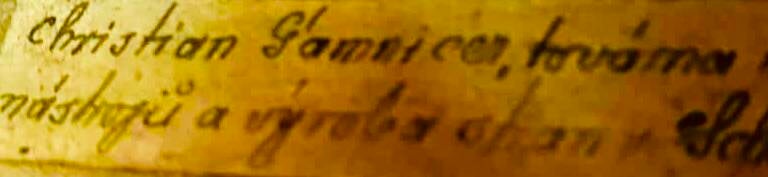 Christian Gámnicer, továrna
nástrojů a výroba strun v Sch